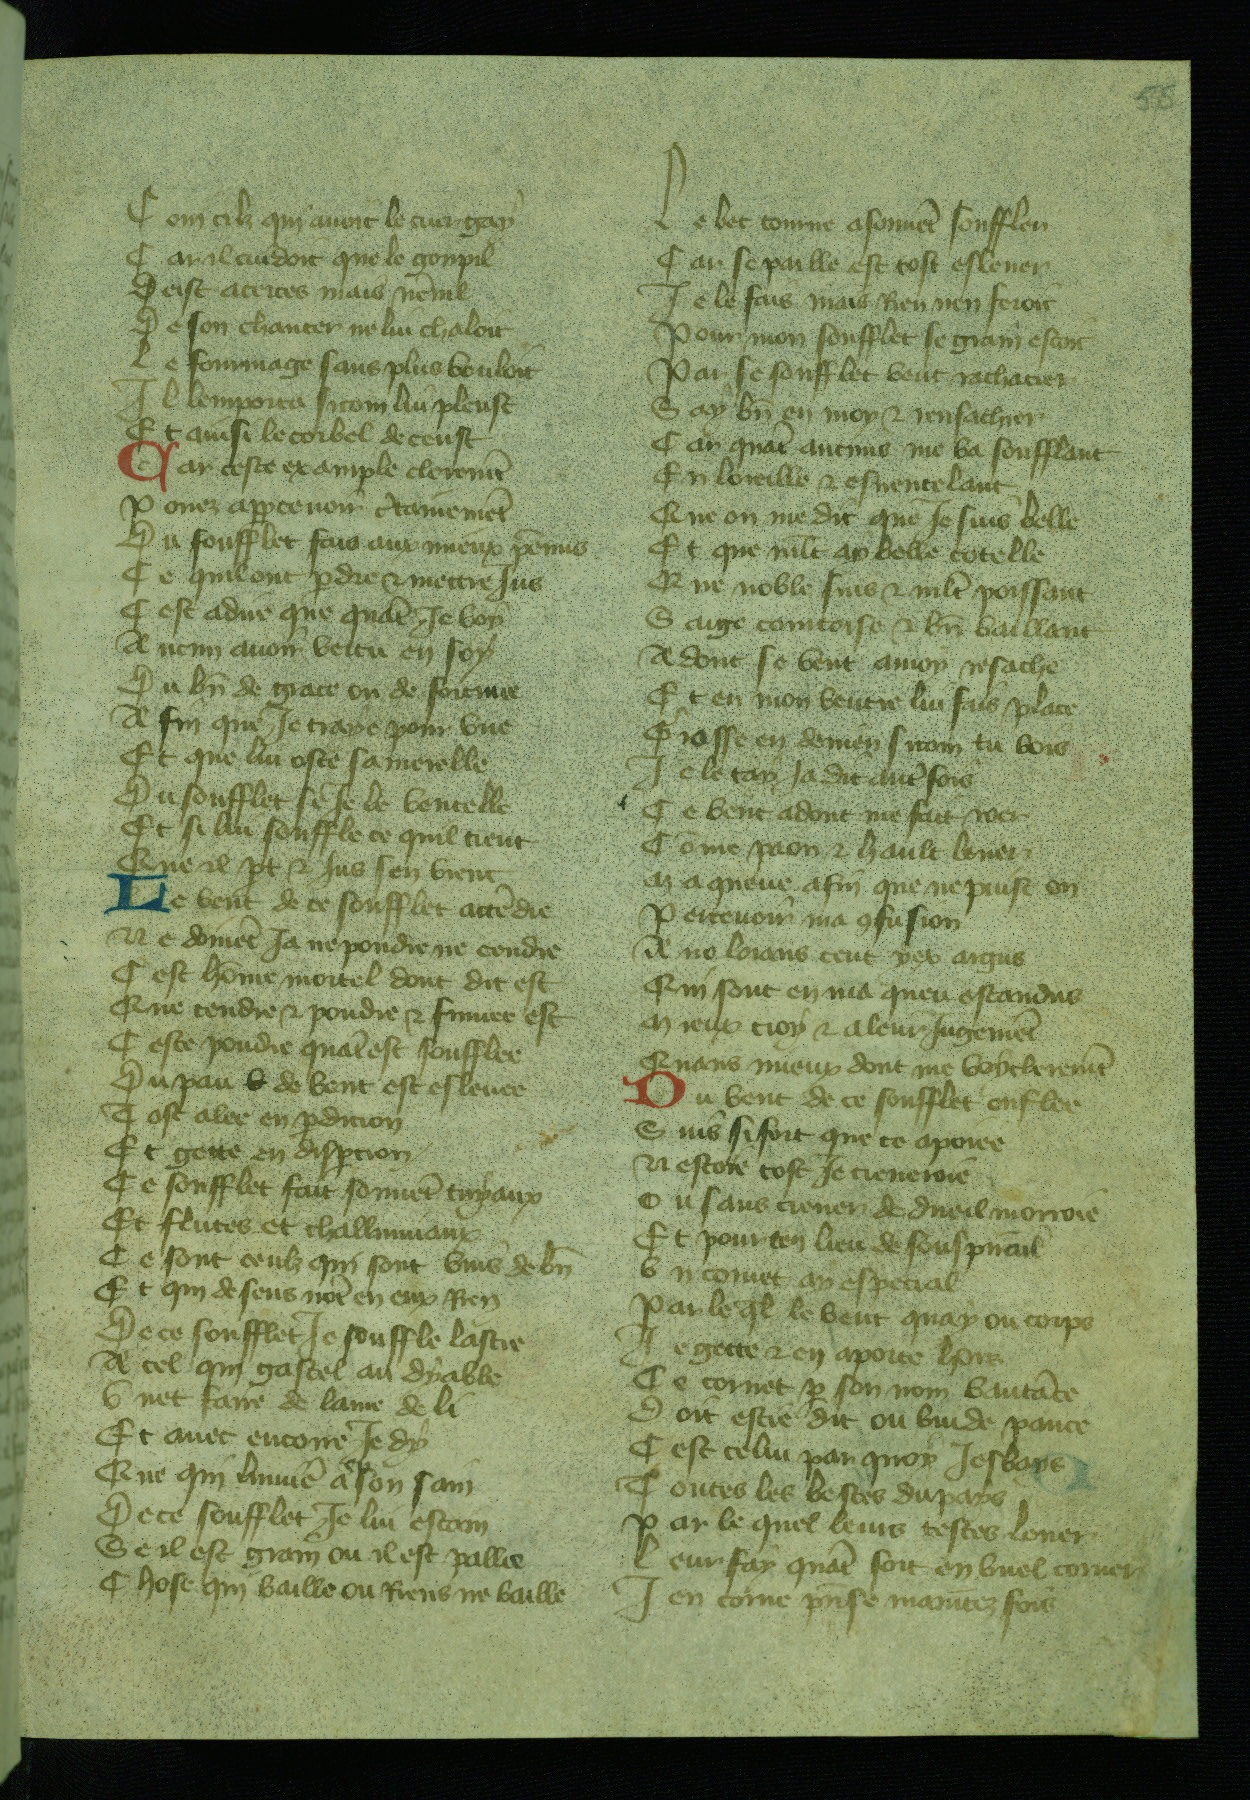 55
Com cilz qui auoit le cuer gay
Car il cuidoit que le goupil
Deist acertes mais nẽnil
De son chanter ne lui chaloit
Le fourmage sans plus vouloit
Il lemporta sicom lui pleust
Et ainsi le corbel deceust
Par ceste example cleremẽt
Pouez apperceuoir c̾tainemẽt
Du soufflet fais aux mieux
Ce quil ont perdre ⁊ mettre Jus
Cest adire que quãt Je voy
Aucun auoir vertu en soy
Du bñ de grace ou de fortune
Afin que Je traye pour vne
Et que lui oste sa merelle
Du soufflet Je le ventelle
Et si lui souffle ce quil tient
Que il pert ⁊ Jus sen vient
Le vent de ce soufflet attẽdre
Ne doiuẽt Ja ne poudre ne cendre
Cest hõme mortel dont dit est
Que cendre ⁊ poudre ⁊ fumee est
Ceste poudre quãt est soufflee
Du pau de vent est esleuee
Tost alee en perdicion
Et gettee en dispercion
Ce soufflet fait souuẽt tuyaux
Et flutes et challumiaux
Ce sont ceulz qui sont vuis de bñ
Et qui de sens nõt en eux Rien
De ce soufflet Je souffle lastre
A cel qui gastel au dyable
Vuet faire de lame de li
Et auec encore Je dy
Que qui lumiẽ a son sain
De ce soufflet Je lui estain
Se il est grain ou il est paille
Chose qui vaille ou Riens ne vaille
Le bec tourne a souuẽt soufflen
Car se paille est tost esleuer
Je le fais mais Rien nen feroit
Pour mon soufflet se grain estoit
Par se soufflet vent rachacier
Say bñ en moy ⁊ rensachier
Car quãt aucuns me va soufflant
En loreille ⁊ esuentelant
Que on me dit que Je suis belle
Et que mlt ay belle cotelle
Que noble suis ⁊ mlt poissant
Saige courtoise ⁊ bñ vaillant
Adont se vent a moy resache
Et en mon ventre lui fais place
Grosse en deuien sicom tu vois
Je le tay Ja dit autre fois
Ce vent adont me fait roer
Cõme paon ⁊ hault leuer
Ma queue afin que ne puist on
Perceuoir ma 9fusion
A no loians cent yex argus
Qui sont en ma queu estandus
Mieux croy ⁊ a leur Jugemẽt
Quans mieux dont me voy cleremẽt
Du vent de ce soufflet enflee
Suis si fort que ce aporee
Nestoie tost Je creueroie
Ou sans creuer de dueil morroie
Et pour ten lieu de souspirail
Vn cornet ay especial
Par le q̃l le vent quay ou corps
Je gette ⁊ en aporte hors
Ce cornet p son nom vantãce
Doit estre dit ou vuide pance
Cest celui par quoy Jesbays
Toutes les bestes du pays
Par le quel leurs testes leuer
Leur fay quãt soit en vuel corner
Jen corne prinse maintez fois